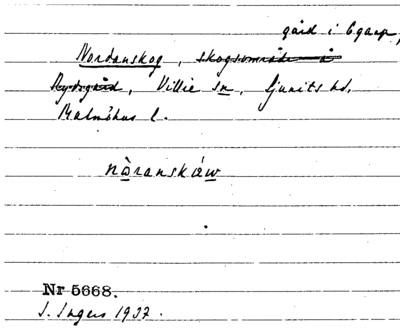 gård i Egarp,
Nordanskog, skogsområde å
Rydsgård, Villie sn, Ljunits hd,
Malmöhus l.
nòranskáw
Nr 5668.
I. Ingers 1937.